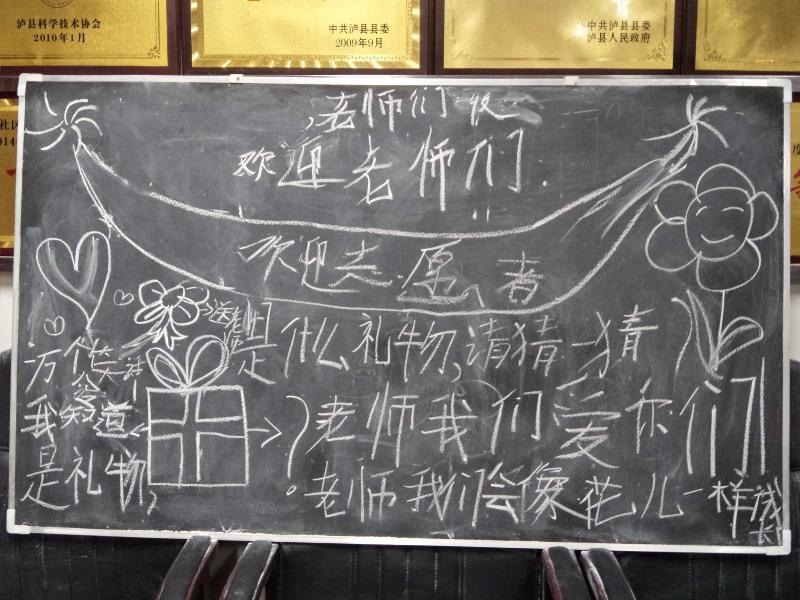 泸县科学技术协会
2010年1月
中共泸县县委
2009年9月
中共泸县县委
泸县人民政府
老师们收
欢迎老师们.
欢迎志愿者
送老师
是什么礼物,请猜一猜
万个笑冲
我知道
是礼物,
?老师我们爱你们!
。老师我们会像花儿一样成长